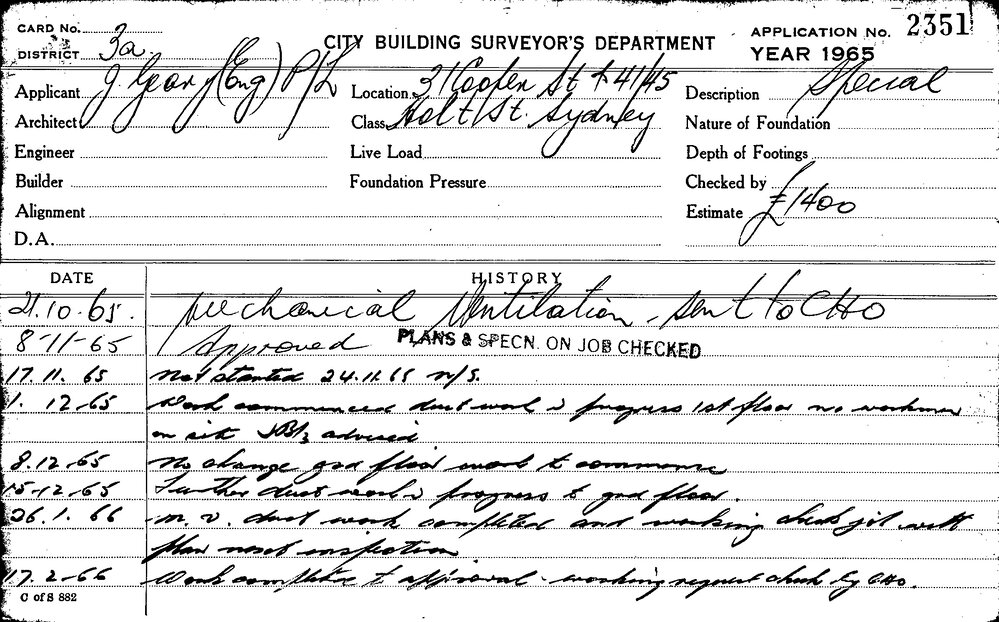 CARD No.
DISTRICT 3a
CITY BUILDING SURVEYOR'S DEPARTMENT
APPLICATION No. 2351
YEAR 1965
Applicant J. Gear (Eng) P/L
Location 21 Cooper St & 41/45
Description Special
Architect
Class Holt St. Sydney
Nature of Foundation
Engineer
Live Load
Depth of Footings
Builder
Foundation Pressure
Checked by
Alignment
Estimate £1400
D.A.
DATE HISTORY
21.10.65. Mechanical Ventilation - sent to CHO
8-11-65 Approved PLANS & SPECN. ON JOB CHECKED
17.11.65 Not started 24.11.65 N/S.
1.12-65 Work commenced duct work in progress 1st floor no workmen
on site advised
8.12-65 No change grd floor work to commence
15-12-65 Further duct work in progress to grd floor.
26.1.66 M.V. duct work completed and working check with
plan next inspection
17.2-66 Work complete to approval - working request check by CHO.
C of S 882